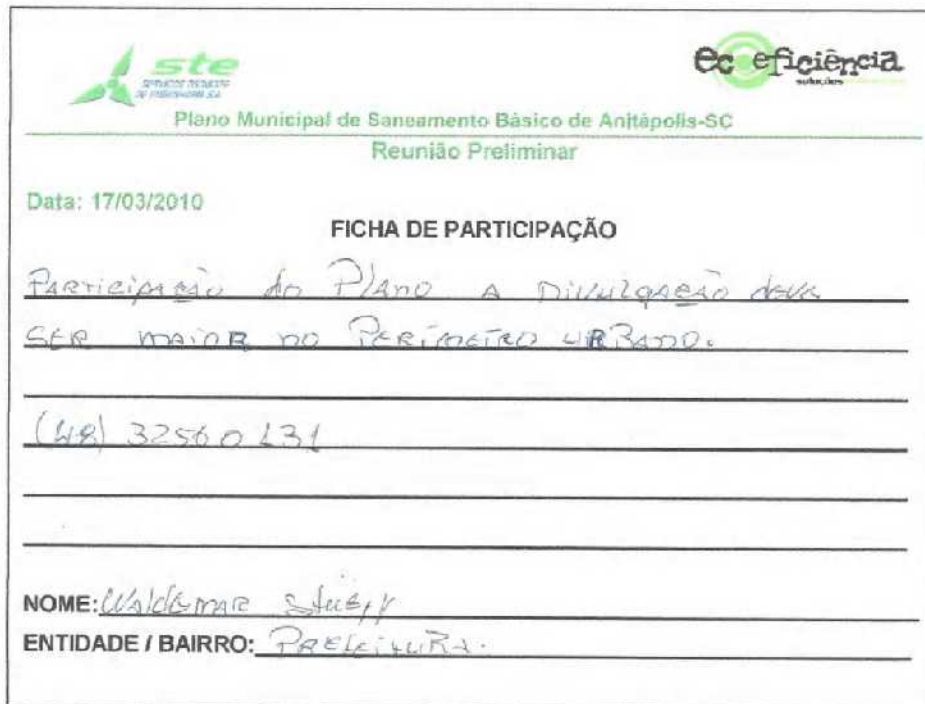 ste
SERVIÇOS TÉCNICOS
DE ENGENHARIA S.A.
ec eficiência
soluções
Plano Municipal de Saneamento Básico de Anitápolis-SC
Reunião Preliminar
Data: 17/03/2010
FICHA DE PARTICIPAÇÃO
PARTICIPAÇÃO do PLANO A DIVULGAÇÃO deve
SER MAIOR NO PERÍMETRO URBANO.
(48) 32560131
NOME: WALDEMAR
ENTIDADE / BAIRRO: PREFEITURA.